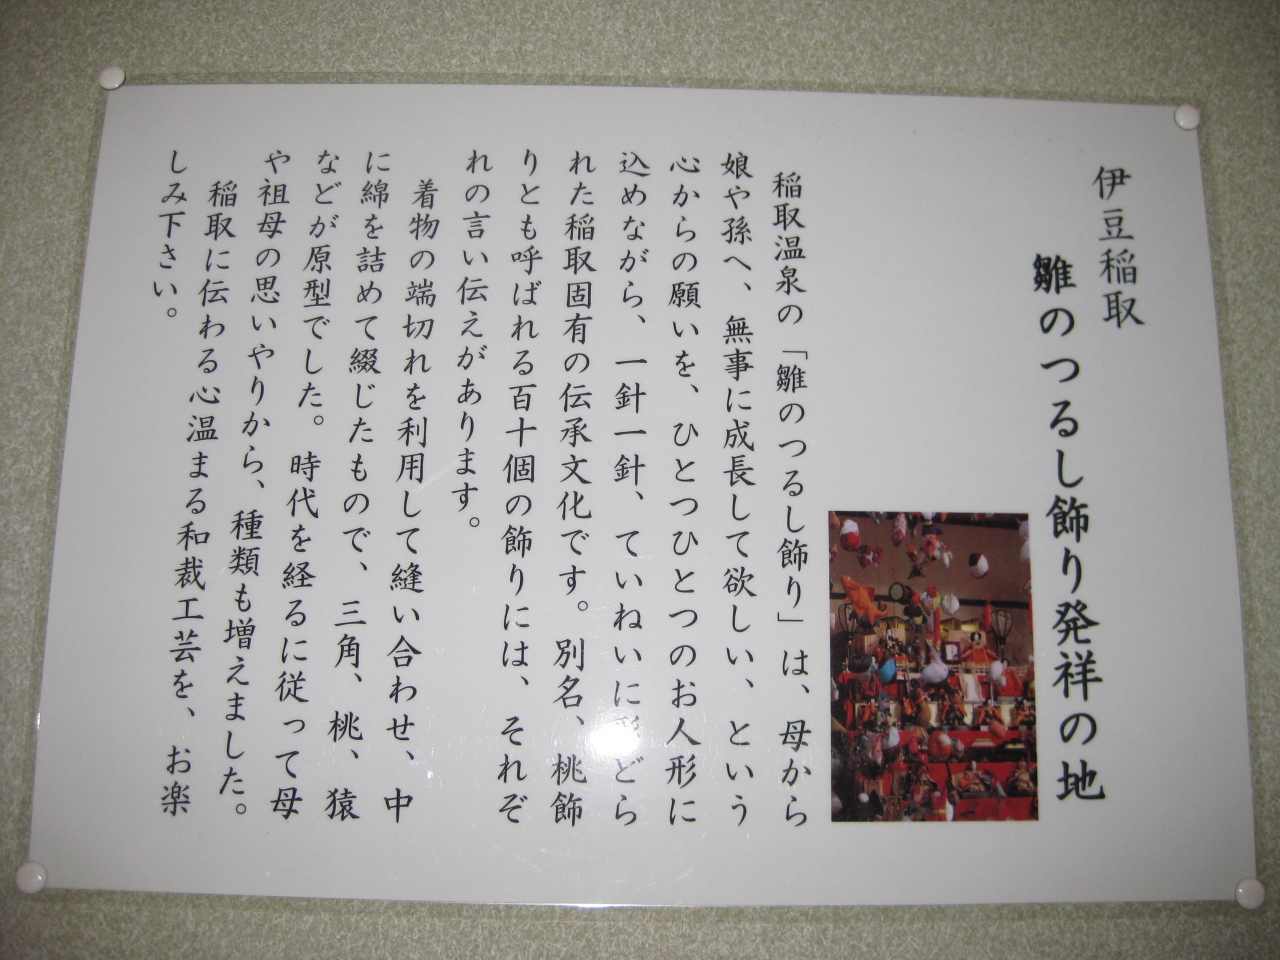 伊豆稲取
雛のつるし飾り発祥の地
稲取温泉の「雛のつるし飾り」は、母から
娘や孫へ、無事に成長して欲しい、という
心からの願いを、ひとつひとつのお人形に
込めながら、一針一針、ていねいに どら
れた稲取固有の伝承文化です。別名、桃飾
りとも呼ばれる百十個の飾りには、それぞ
れの言い伝えがあります。
着物の端切れを利用して縫い合わせ、中
に綿を詰めて綴じたもので、三角、桃、猿
などが原型でした。時代を経るに従って母
や祖母の思いやりから、種類も増えました。
稲取に伝わる心温まる和裁工芸を、お楽
しみ下さい。